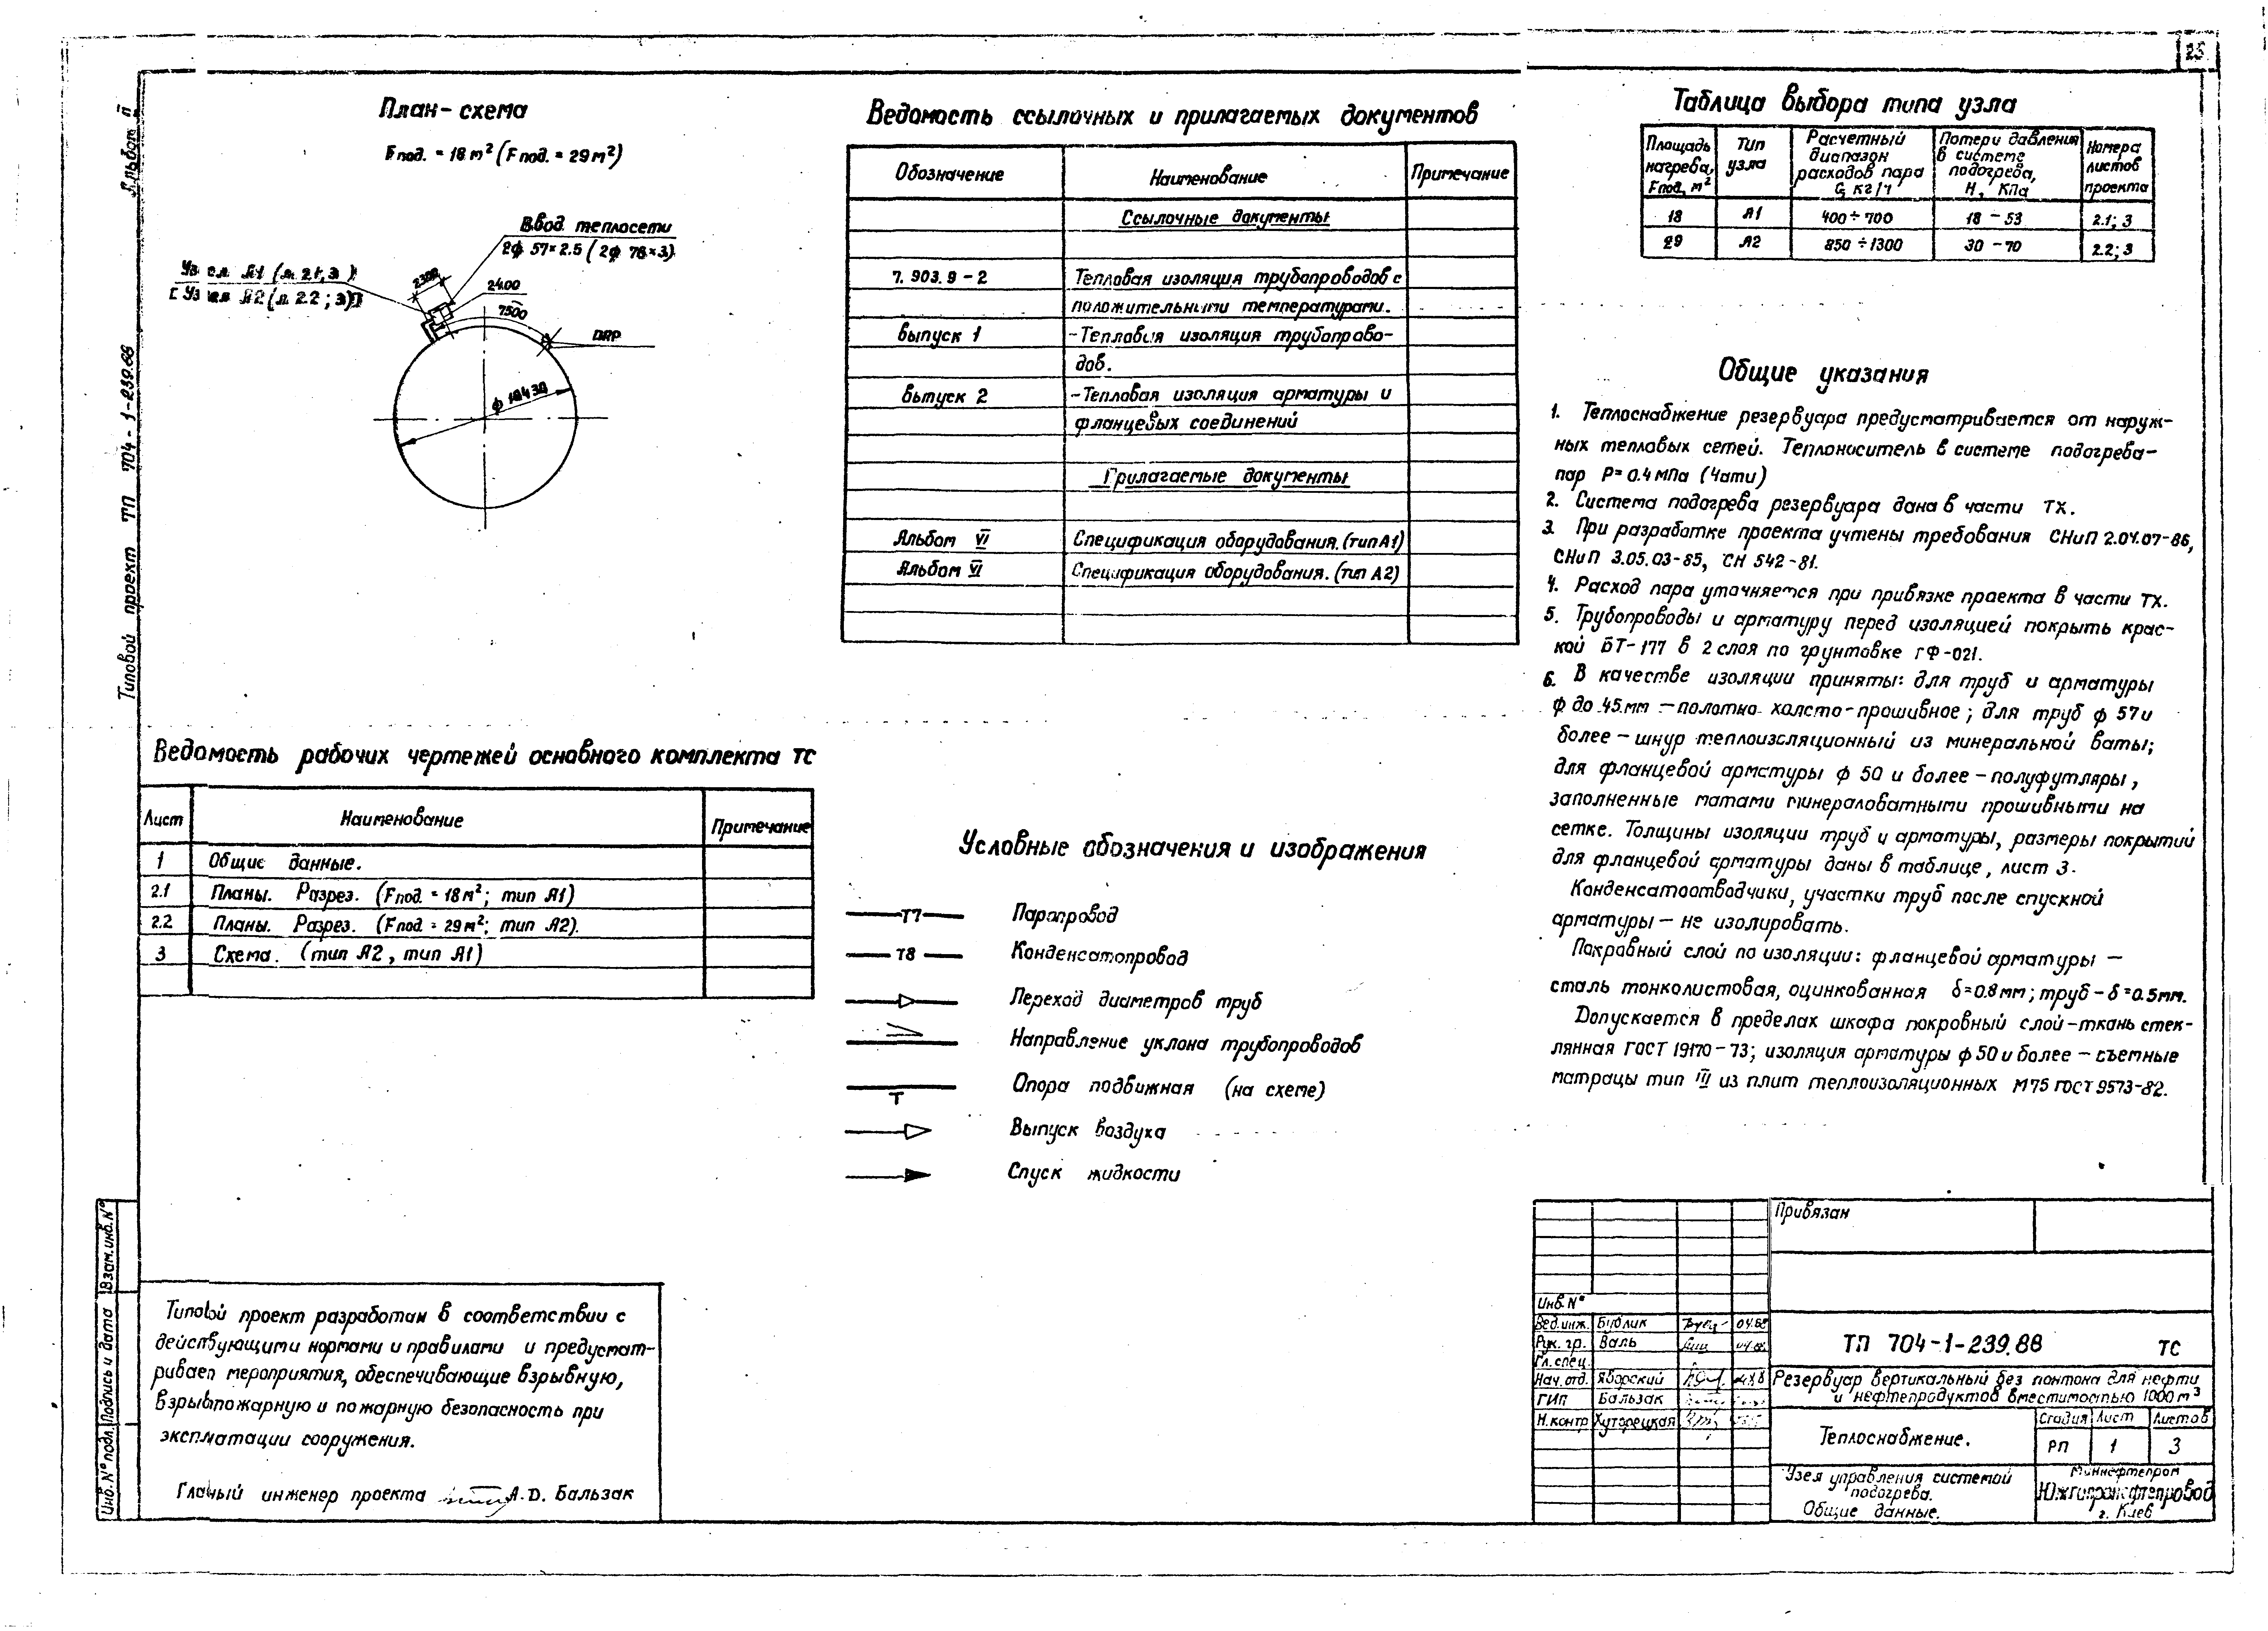 25
Альбом II
Типовой проект ТП 704-1-239.88
План-схема
Fпод. = 18 м² (Fпод. = 29 м²)
Ввод теплосети
2ф 57×2.5 (2ф 76×3)
Узел А1 (л. 2.1; 3)
[Узел А2 (л. 2.2; 3)]
2300
2400
7500
DRP
ф 10430
Ведомость ссылочных и прилагаемых документов
Обозначение Наименование Примечание
Ссылочные документы
7.903.9-2 Тепловая изоляция трубопроводов с
положительными температурами.
выпуск 1 -Тепловая изоляция трубопрово-
дов.
выпуск 2 -Тепловая изоляция арматуры и
фланцевых соединений
Прилагаемые документы
Альбом VI Спецификация оборудования. (тип А1)
Альбом VI Спецификация оборудования. (тип А2)
Таблица выбора типа узла
Площадь нагрева, Fпод, м² Тип узла Расчетный диапазон расходов пара G, кг/ч Потери давления в системе подогрева, Н, КПа Номера листов проекта
18 А1 400÷700 18-53 2.1; 3
29 А2 850÷1300 30-70 2.2; 3
Общие указания
1. Теплоснабжение резервуара предусматривается от наруж-
ных тепловых сетей. Теплоноситель в системе подогрева-
пар Р=0.4 МПа (4 ати)
2. Система подогрева резервуара дана в части ТХ.
3. При разработке проекта учтены требования СНиП 2.04.07-86,
СНиП 3.05.03-85, СН 542-81.
4. Расход пара уточняется при привязке проекта в части ТХ.
5. Трубопроводы и арматуру перед изоляцией покрыть крас-
кой БТ-177 в 2 слоя по грунтовке ГФ-021.
6. В качестве изоляции приняты: для труб и арматуры
ф до 45 мм - полотно холсто-прошивное; для труб ф 57 и
более - шнур теплоизоляционный из минеральной ваты;
для фланцевой арматуры ф 50 и более - полуфутляры,
заполненные матами минераловатными прошивными на
сетке. Толщины изоляции труб и арматуры, размеры покрытий
для фланцевой арматуры даны в таблице, лист 3.
Конденсатоотводчики, участки труб после спускной
арматуры - не изолировать.
Покровный слой по изоляции: фланцевой арматуры -
сталь тонколистовая, оцинкованная δ=0.8 мм; труб - δ=0.5мм.
Допускается в пределах шкафа покровный слой-ткань стек-
лянная ГОСТ 19170-73; изоляция арматуры ф 50 и более - съемные
матрацы тип III из плит теплоизоляционных М75 ГОСТ 9573-82.
Ведомость рабочих чертежей основного комплекта ТС
Лист Наименование Примечание
1 Общие данные.
2.1 Планы. Разрез. (Fпод. = 18 м²; тип А1)
2.2 Планы. Разрез. (Fпод. = 29 м²; тип А2).
3 Схема. (тип А2, тип А1)
Условные обозначения и изображения
Т7 Паропровод
Т8 Конденсатопровод
Переход диаметров труб
Направление уклона трубопроводов
Опора подвижная (на схеме)
Выпуск воздуха
Спуск жидкости
Типовой проект разработан в соответствии с
действующими нормами и правилами и предусмат-
ривает мероприятия, обеспечивающие взрывную,
взрывопожарную и пожарную безопасность при
эксплуатации сооружения.
Главный инженер проекта А.D. Бальзак
Взам. инв. №
Подпись и дата
Инв. № подл.
Привязан
Инв. №
Вед. инж. Бублик 04.88
Рук. гр. Валь 04.88
Гл. спец.
Нач. отд. Яворский
ГИП Бальзак
Н. контр Хуторецкая
ТП 704-1-239.88 ТС
Резервуар вертикальный без понтона для нефти
и нефтепродуктов вместимостью 1000 м³
Теплоснабжение.
Стадия Лист Листов
РП 1 3
Узел управления системой
подогрева.
Общие данные.
Миннефтепром
Южгипронефтепровод
г. Киев